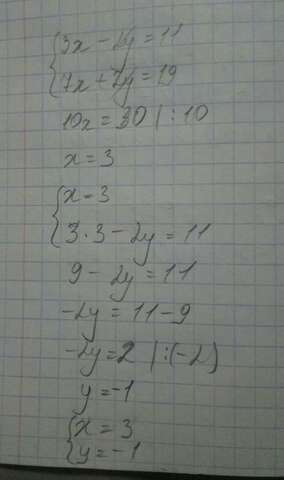 {3x - 2y = 11
{7x + 2y = 19
10x = 30 | : 10
x = 3
{x - 3
{3 · 3 - 2y = 11
9 - 2y = 11
-2y = 11 - 9
-2y = 2 | : (-2)
y = -1
{x = 3
{y = -1